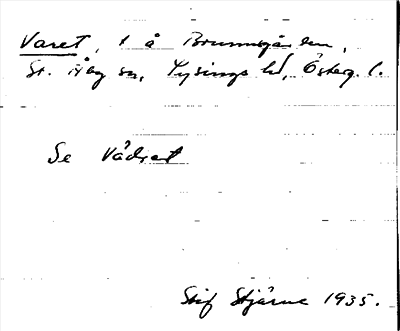 Varet, t å Brunnsgården,
St. Åby sn, Lysings hd, Östeg. l.
Se Vådret
Stig Stjärne 1935.